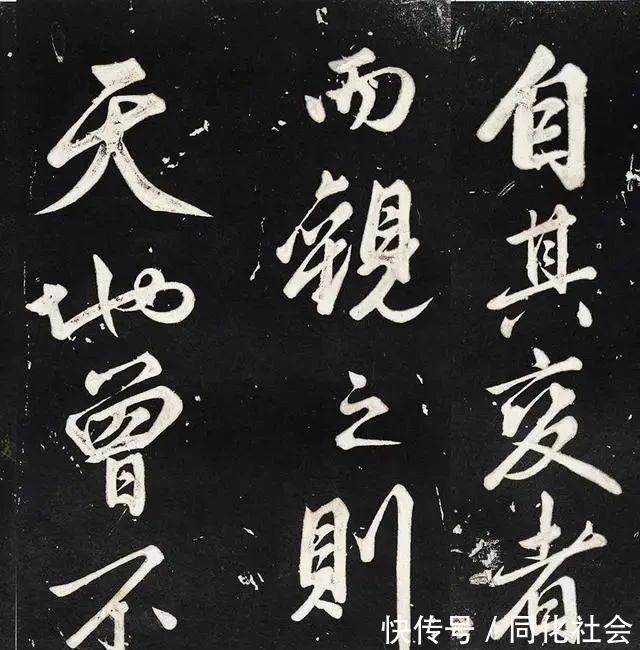 自其变者
而觀之則
天地曾不
快传号/同化社会